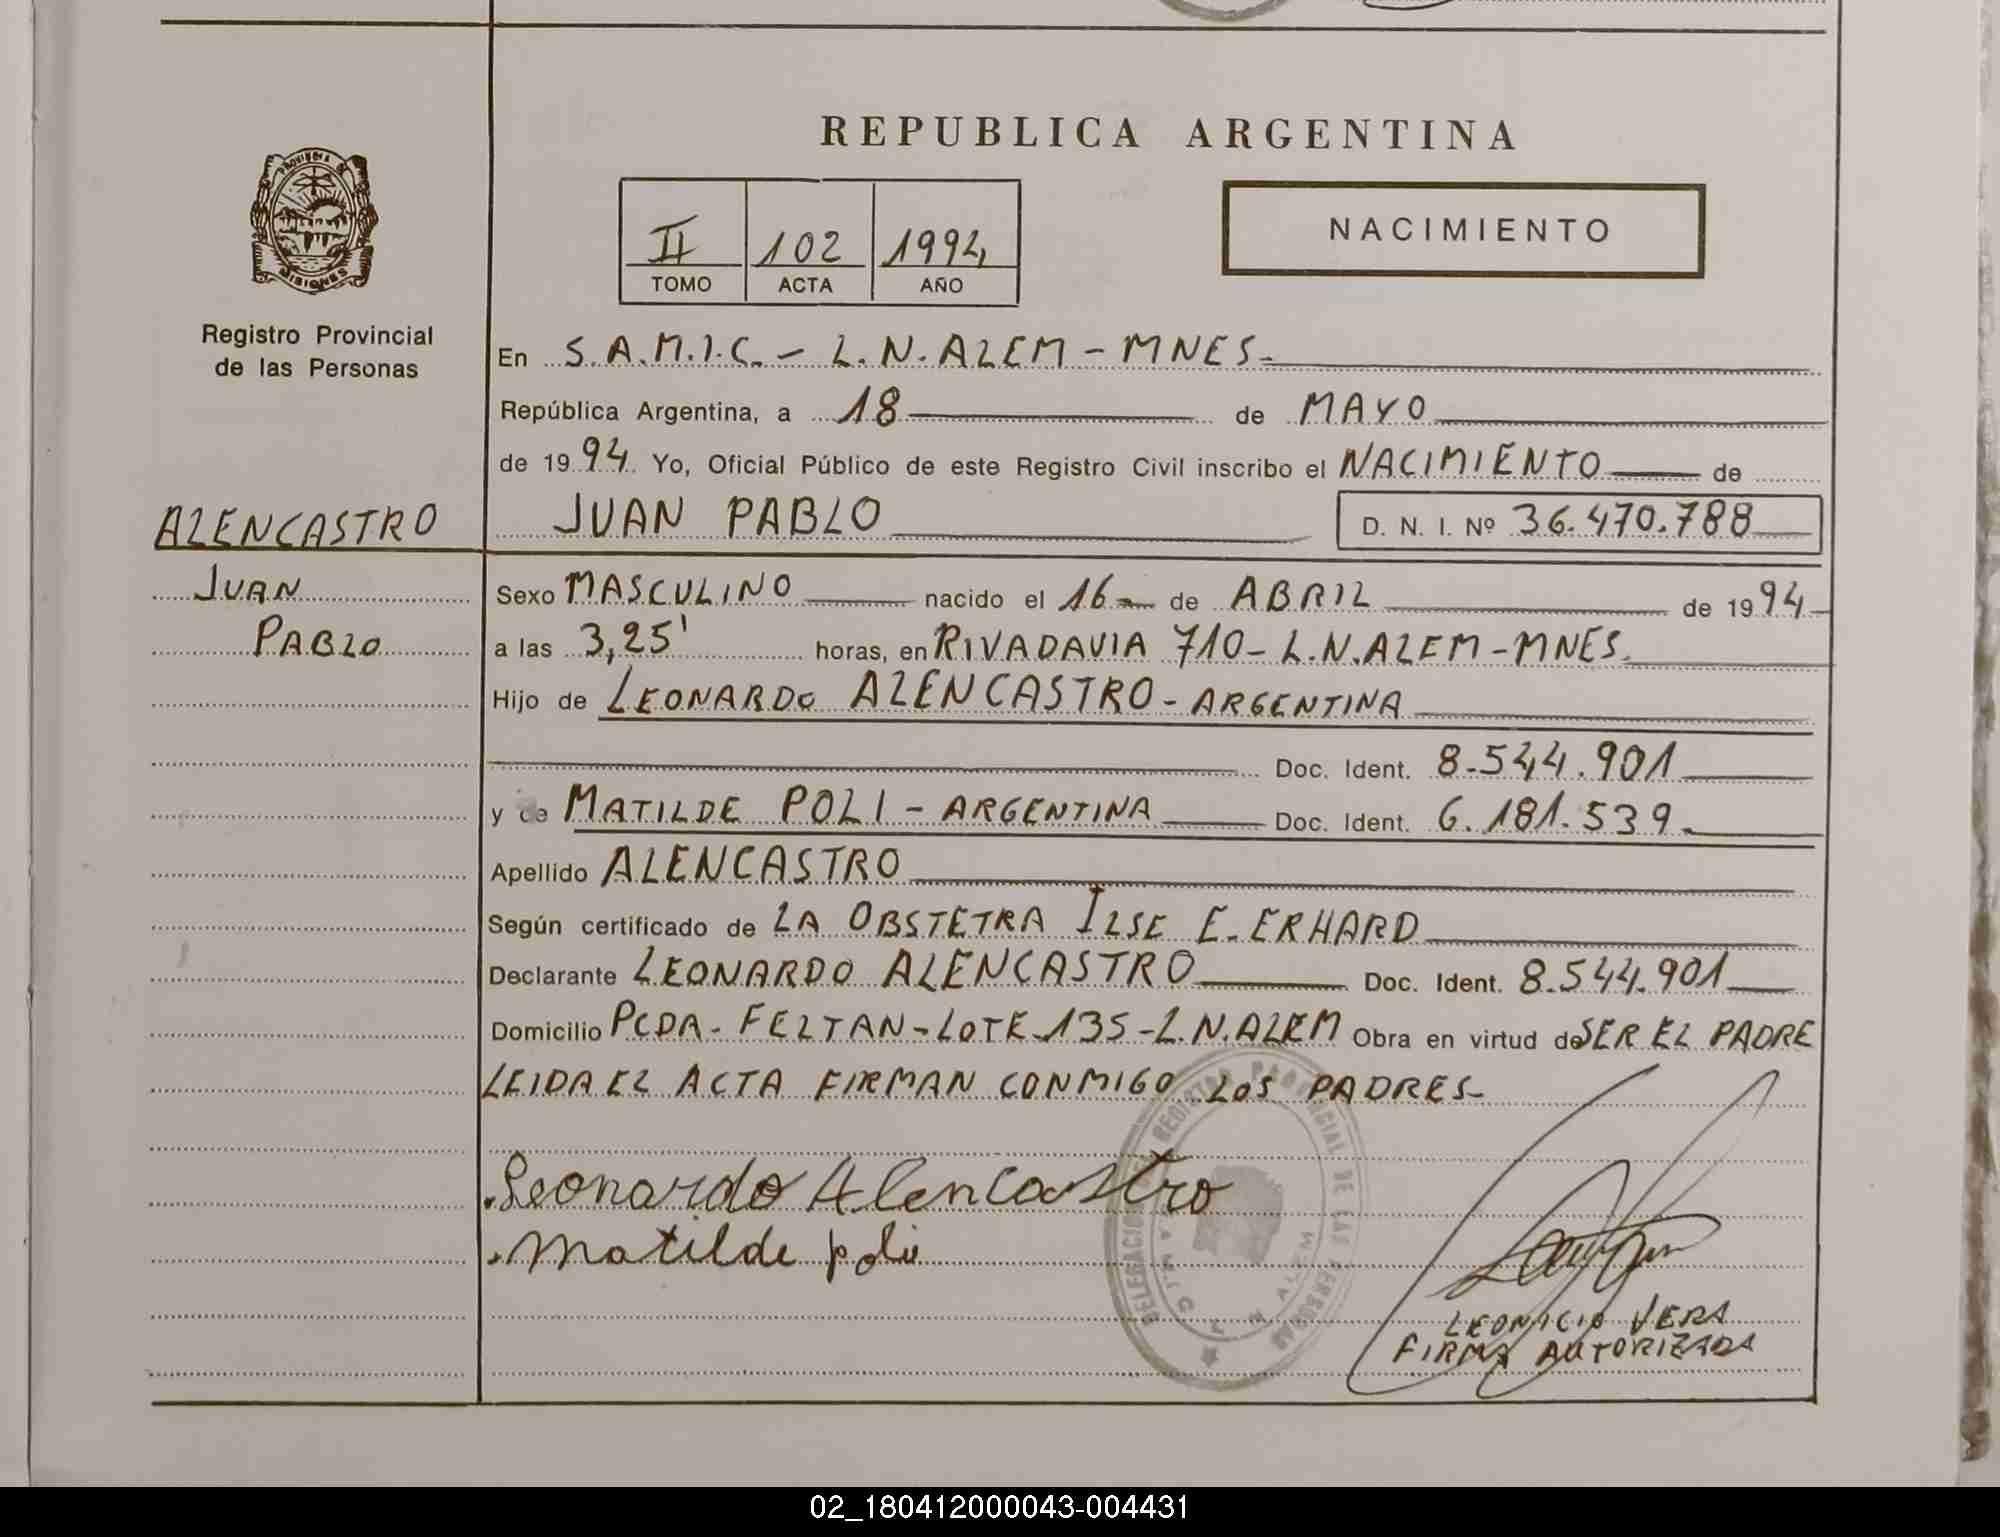 REPUBLICA ARGENTINA
PROVINCIA DE
MISIONES
II 102 1994
TOMO ACTA AÑO
NACIMIENTO
Registro Provincial
de las Personas
En S.A.M.I.C.- L.N.ALEM-MNES-
República Argentina, a 18 de MAYO
de 1994 Yo, Oficial Público de este Registro Civil inscribo el NACIMIENTO de
ALENCASTRO JUAN PABLO D. N. I. Nº 36.470.788
JUAN Sexo MASCULINO nacido el 16 de ABRIL de 1994
PABLO a las 3,25' horas, en RIVADAVIA 710-L.N.ALEM-MNES.
Hijo de LEONARDO ALENCASTRO-ARGENTINA
Doc. Ident. 8.544.901
y de MATILDE POLI-ARGENTINA Doc. Ident. 6.181.539.
Apellido ALENCASTRO
Según certificado de LA OBSTETRA ILSE E. ERHARD
Declarante LEONARDO ALENCASTRO Doc. Ident. 8.544.901
Domicilio PCDA-FELTAN-LOTE-135-L.N.ALEM Obra en virtud de SER EL PADRE
LEIDA EL ACTA FIRMAN CONMIGO LOS PADRES-
Leonardo Alencastro
Matilde poli
DELEGACION REGISTRO PROVINCIAL DE LAS PERSONAS
ALEM
LEONICIO VERA
FIRMA AUTORIZADA
02_180412000043-004431